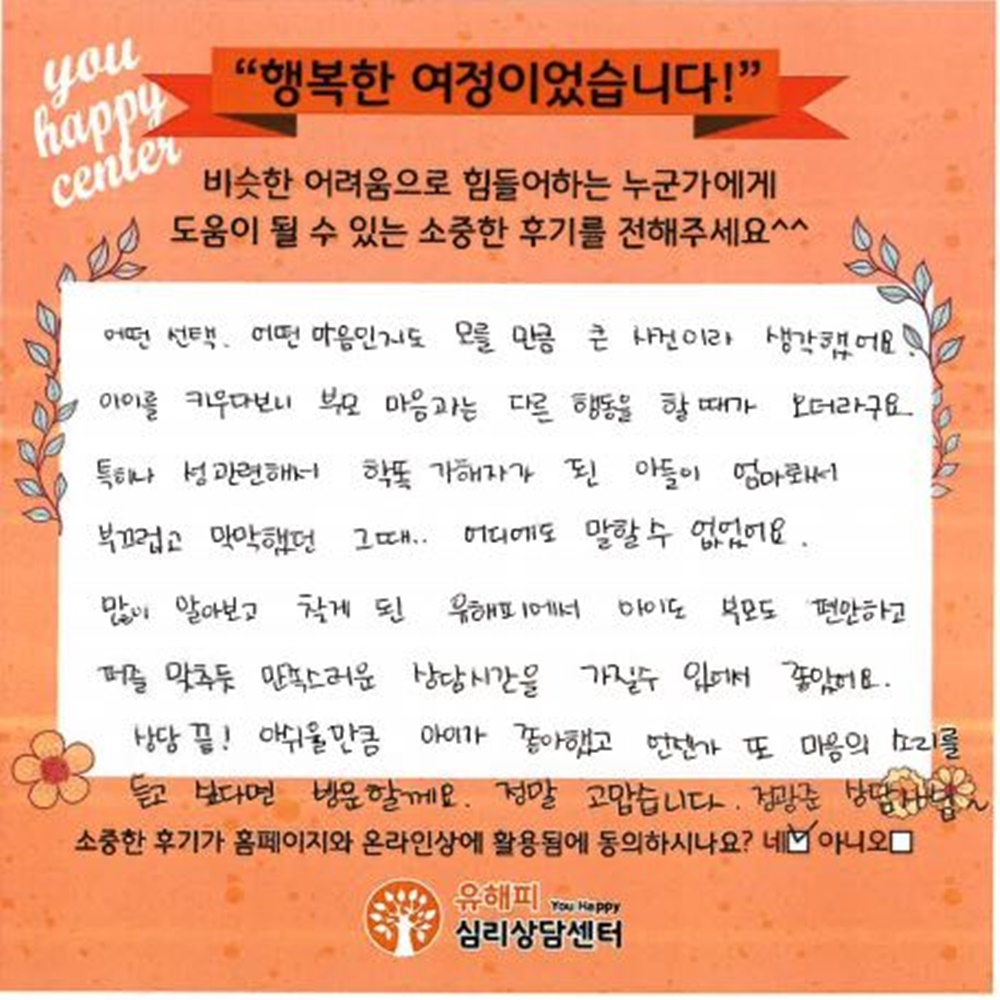 you
happy
center
“행복한 여정이었습니다!”
비슷한 어려움으로 힘들어하는 누군가에게
도움이 될 수 있는 소중한 후기를 전해주세요^^
어떤 선택. 어떤 마음인지도 모를 만큼 큰 사건이라 생각했어요.
아이를 키우다보니 부모 마음과는 다른 행동을 할 때가 오더라구요
특히나 성관련해서 학폭 가해자가 된 아들이 엄마로써
부끄럽고 막막했던 그때.. 어디에도 말할 수 없었어요.
많이 알아보고 찾게 된 유해피에서 아이도 부모도 편안하고
퍼즐 맞추듯 만족스러운 상담시간을 가질수 있어서 좋았어요.
상담 끝! 아쉬울만큼 아이가 좋아했고 언젠가 또 마음의 소리를
듣고 싶다면 방문할께요. 정말 고맙습니다. 정광준 상담사님~
소중한 후기가 홈페이지와 온라인상에 활용됨에 동의하시나요? 네☑ 아니오☐
유해피 You Happy
심리상담센터